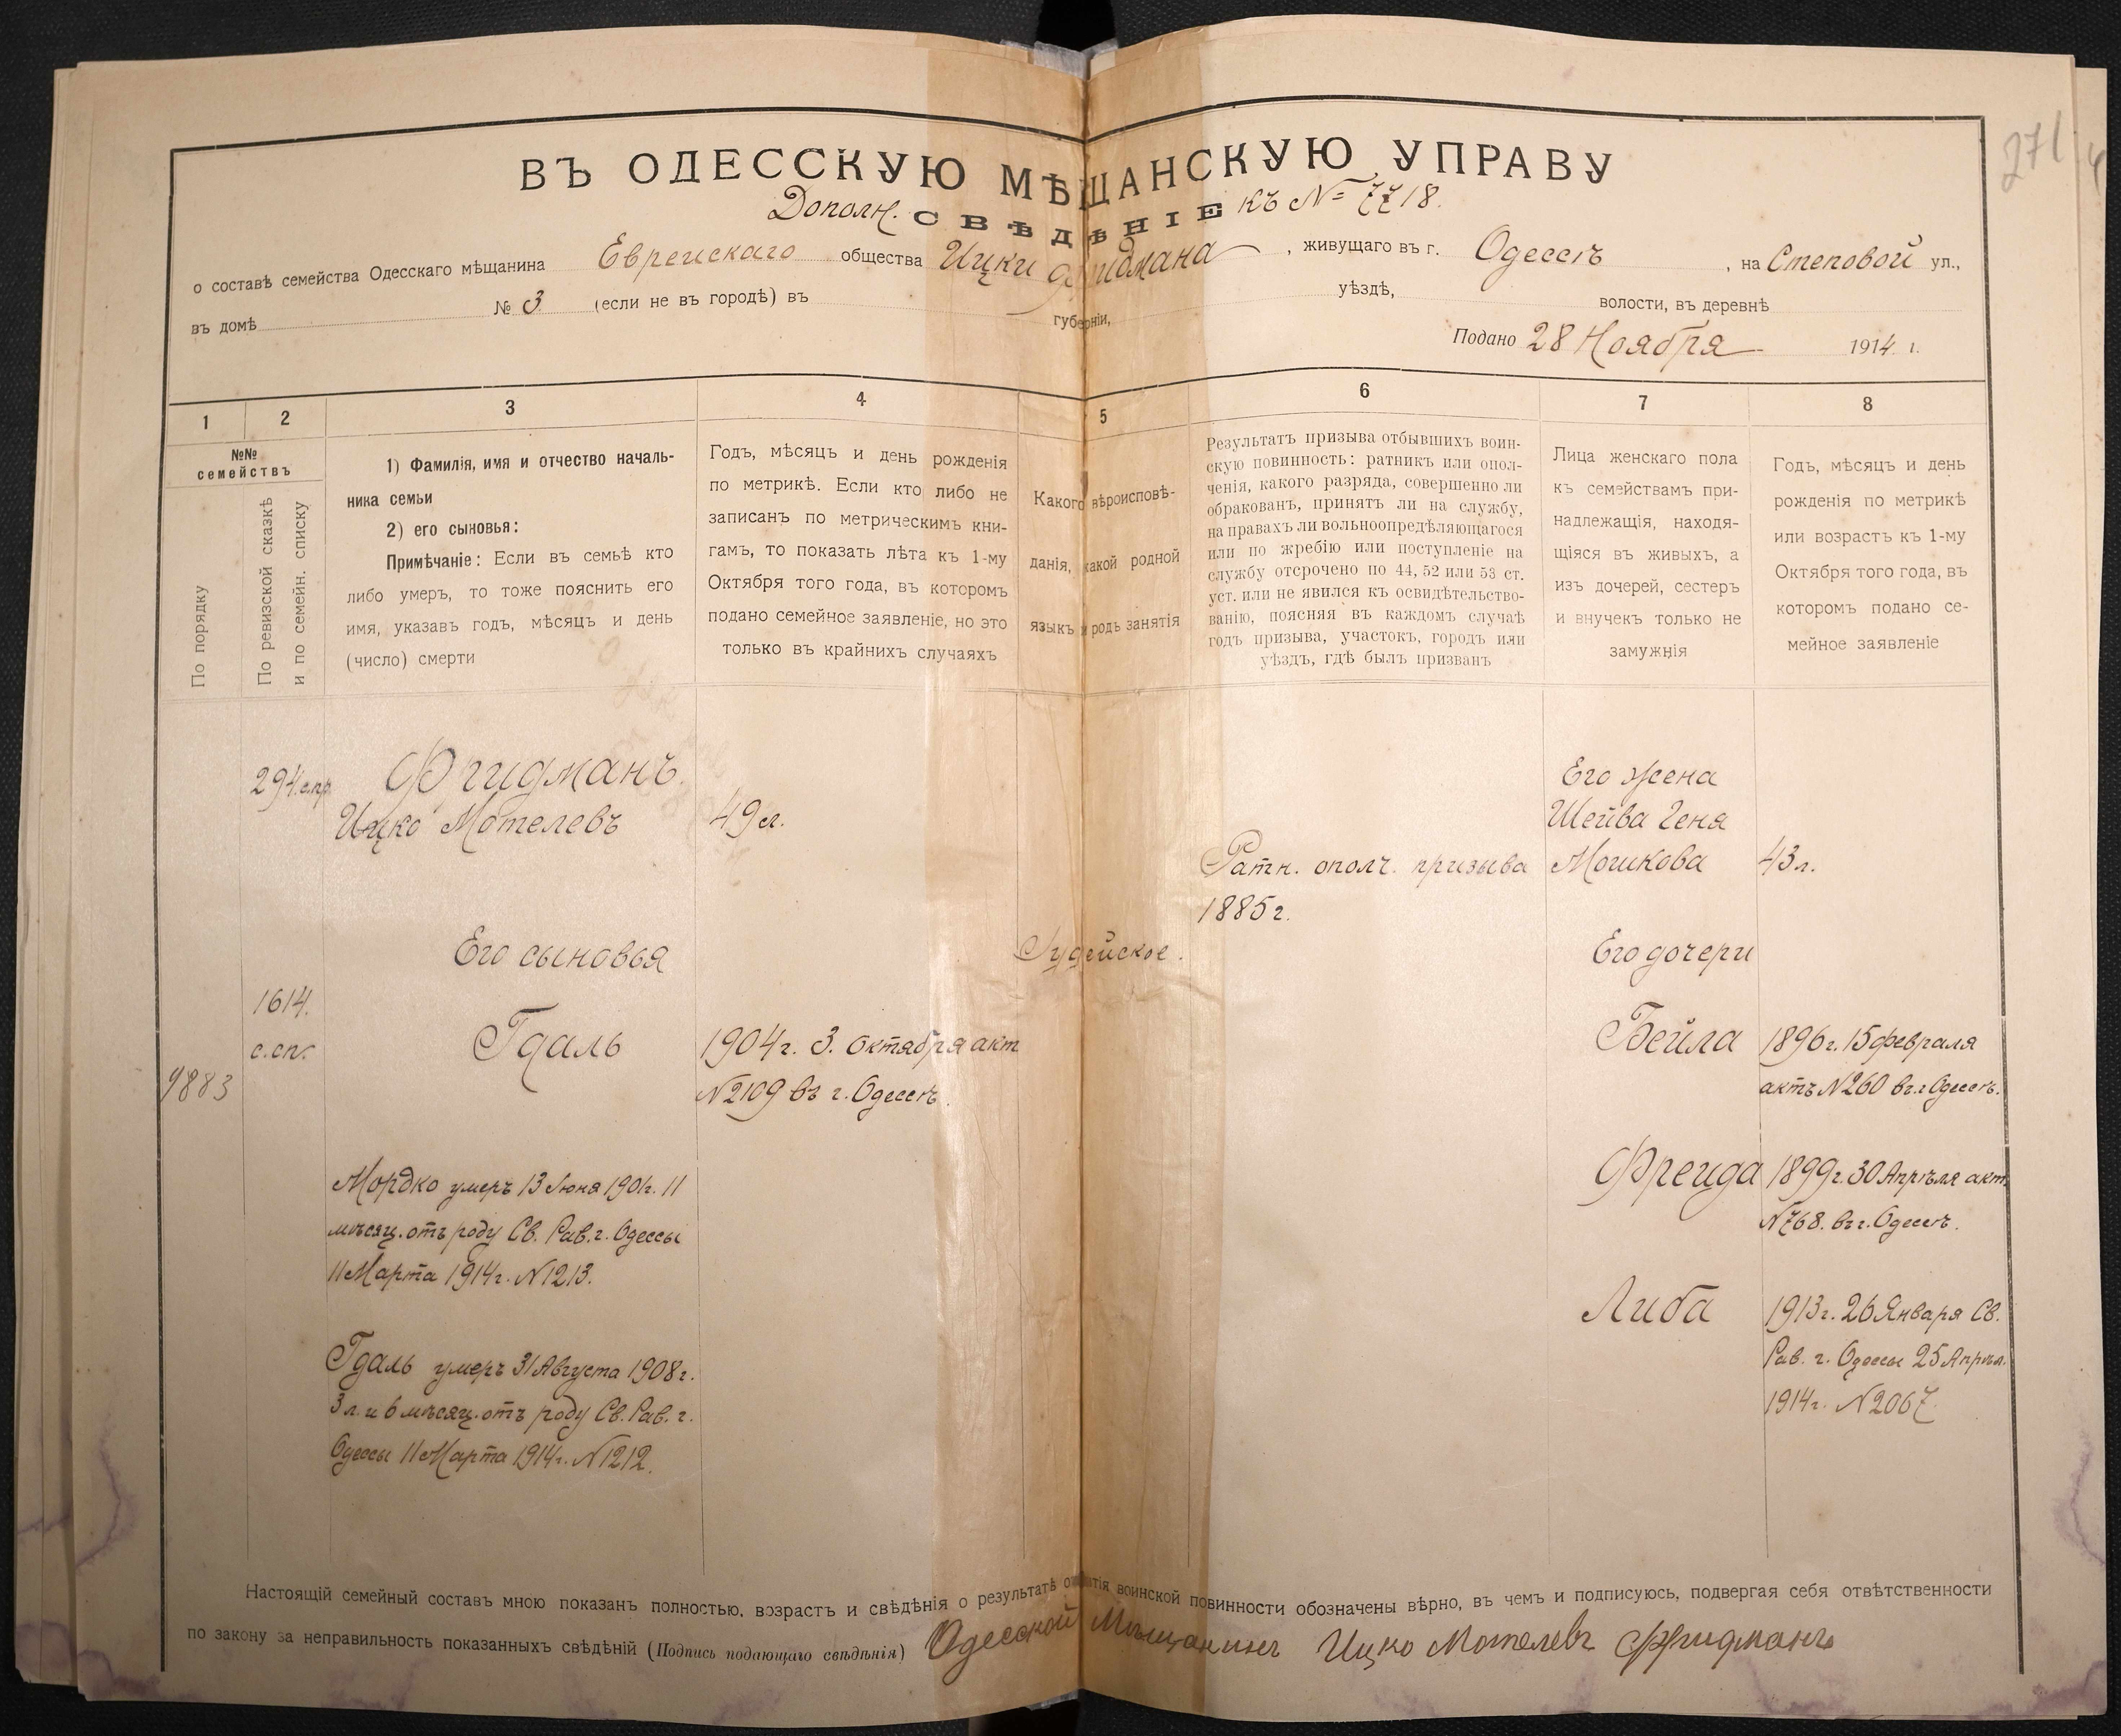 271
ВЪ ОДЕССКУЮ МѢЩАНСКУЮ УПРАВУ
Дополн. СВѢДѢНІЕ къ № 7718.
о составѣ семейства Одесскаго мѣщанина Еврейскаго общества Ицки Фридмана, живущаго въ г. Одессѣ, на Степовой ул.,
въ домѣ № 3 (если не въ городѣ) въ губерніи, уѣздѣ, волости, въ деревнѣ
Подано 28 Ноября 1914 г.
1 2 3 4 5 6 7 8
№№
семействъ
По порядку
По ревизской сказкѣ
и по семейн. списку
1) Фамилія, имя и отчество началь-
ника семьи
2) его сыновья:
Примѣчаніе: Если въ семьѣ кто
либо умеръ, то тоже пояснить его
имя, указавъ годъ, мѣсяцъ и день
(число) смерти
Годъ, мѣсяцъ и день рожденія
по метрикѣ. Если кто либо не
записанъ по метрическимъ кни-
гамъ, то показать лѣта къ 1-му
Октября того года, въ которомъ
подано семейное заявленіе, но это
только въ крайнихъ случаяхъ
Какого вѣроисповѣ-
данія, какой родной
языкъ и родъ занятія
Результатъ призыва отбывшихъ воин-
скую повинность: ратникъ или опол-
ченія, какого разряда, совершенно ли
обракованъ, принятъ ли на службу,
на правахъ ли вольноопредѣляющагося
или по жребію или поступленіе на
службу отсрочено по 44, 52 или 53 ст.
уст. или не явился къ освидѣтельство-
ванію, поясняя въ каждомъ случаѣ
годъ призыва, участокъ, городъ или
уѣздъ, гдѣ былъ призванъ
Лица женскаго пола
къ семействамъ при-
надлежащія, находя-
щіяся въ живыхъ, а
изъ дочерей, сестеръ
и внучекъ только не
замужнія
Годъ, мѣсяцъ и день
рожденія по метрикѣ
или возрастъ къ 1-му
Октября того года, въ
которомъ подано се-
мейное заявленіе
9883
294.
1614.
с.сп.
Фридманъ.
Ицко Мотелевъ
Его сыновья
Гдаль
Мордко умеръ 13 Іюня 1901г. 11
мѣсяц. отъ роду Св. Рав. г. Одессы
11 Марта 1914г. №1213.
Гдаль умеръ 31 Августа 1908г.
3 л. и 6 мѣсяц. отъ роду Св. Рав. г.
Одессы 11 Марта 1914г. №1212.
49 л.
1904г. 3. Октября акт
№2109 въ г. Одессѣ.
Іудейское.
Ратн. ополч. призыва
1885г.
Его жена
Шейва Геня
Мошкова
Его дочери
Бейла
Фрейда
Либа
43 л.
1896г. 15 февраля
актъ №260 въ г. Одессѣ.
1899г. 30 Апрѣля акт.
№768. въ г. Одессѣ.
1913г. 26 Января Св.
Рав. г. Одессы 25 Апрѣл.
1914г. №2067.
Настоящій семейный составъ мною показанъ полностью, возрастъ и свѣдѣнія о результатѣ отбытія воинской повинности обозначены вѣрно, въ чемъ и подписуюсь, подвергая себя отвѣтственности
по закону за неправильность показанныхъ свѣдѣній (Подпись подающаго свѣдѣнія) Одесской Мѣщанинъ Ицко Мотелевъ Фридманъ